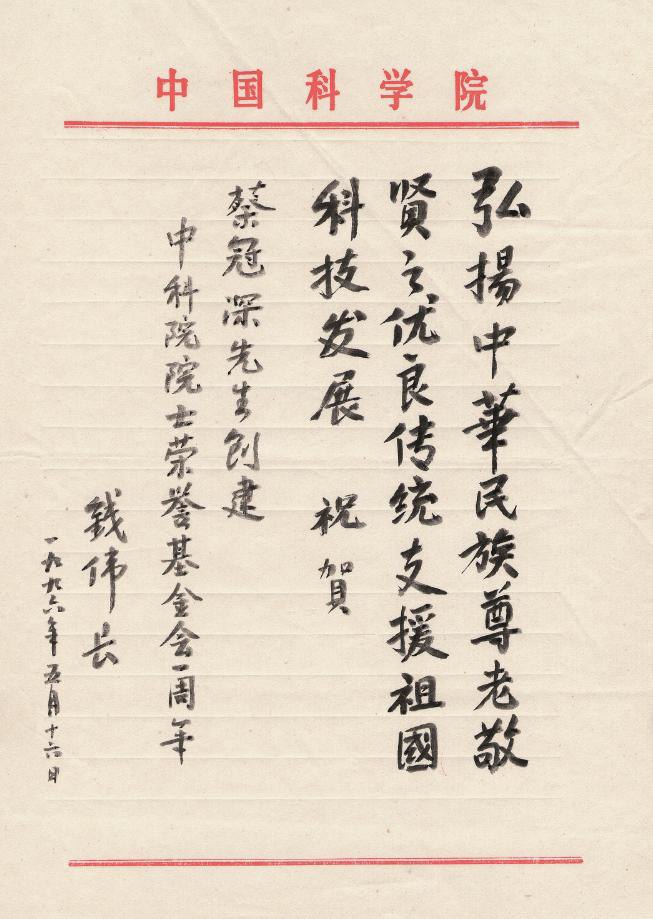 中国科学院
弘揚中華民族尊老敬
贤之优良传统支援祖國
科技发展 祝賀
蔡冠深先生创建
中科院院士荣誉基金会一周年
钱伟长
一九九六年五月十六日